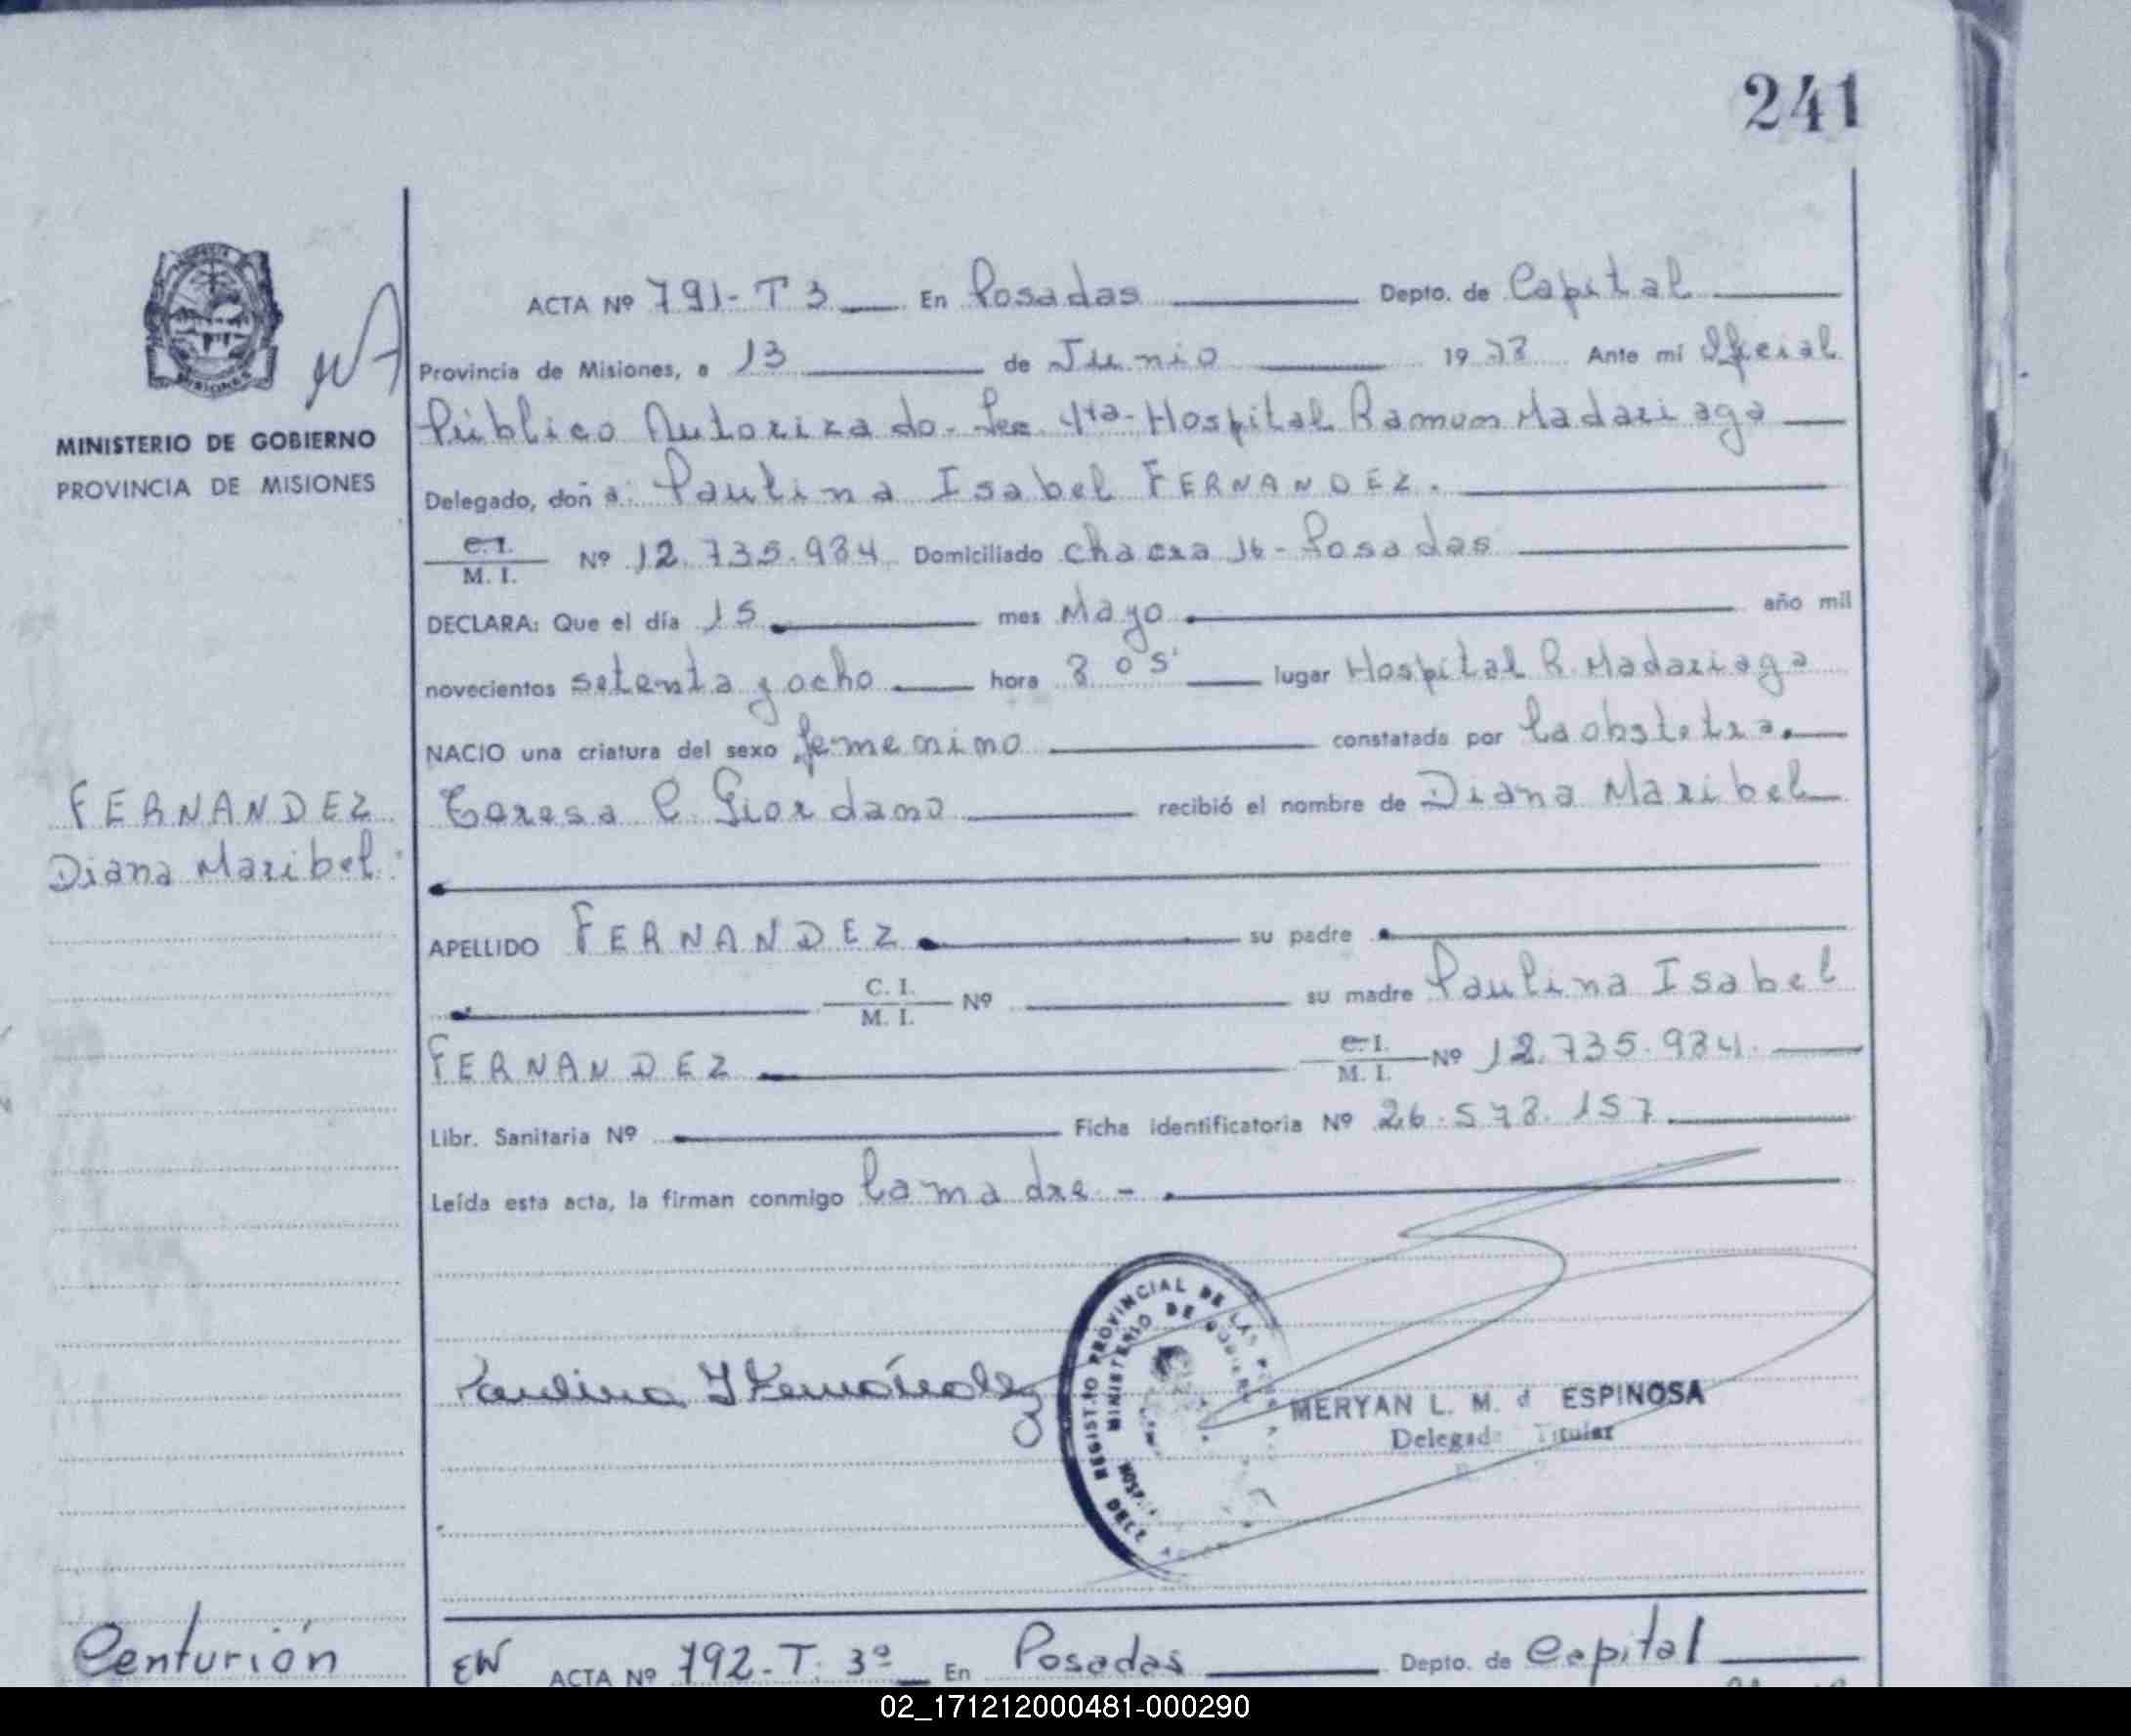 241
ACTA Nº 791-T3 En Posadas Depto. de Capital
Provincia de Misiones, a 13 de Junio 1978 Ante mí Oficial
MINISTERIO DE GOBIERNO
PROVINCIA DE MISIONES
Público Autorizado - Sec. 4ta - Hospital Ramon Madariaga
Delegado, doña: Paulina Isabel FERNANDEZ.
C. I.
M. I. Nº 12.735.984 Domiciliado chacra 16 - Posadas
DECLARA: Que el día 15 mes Mayo año mil
novecientos setenta y ocho hora 8 05' lugar Hospital R. Madariaga
NACIO una criatura del sexo femenino constatada por la obstetra.
FERNANDEZ
Diana Maribel.
Teresa C. Giordano recibió el nombre de Diana Maribel
APELLIDO FERNANDEZ su padre
C. I.
M. I. Nº su madre Paulina Isabel
FERNANDEZ C. I.
M. I. Nº 12.735.984.
Libr. Sanitaria Nº Ficha identificatoria Nº 26.578.157
Leída esta acta, la firman conmigo la madre -
REGISTRO PROVINCIAL DE LAS
MINISTERIO DE GOBIERNO
Paulina I Fernández
MERYAN L. M. d ESPINOSA
Delegada Titular
Centurión
EW ACTA Nº 792-T. 3º En Posadas Depto. de Capital
02_171212000481-000290